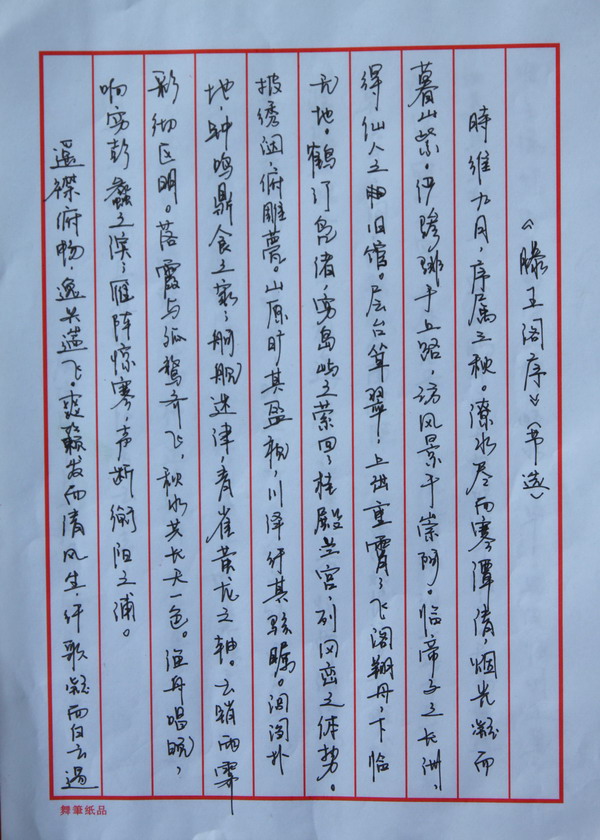 《滕王阁序》（节选）
時维九月，序属三秋。潦水尽而寒潭清，烟光凝而
暮山紫。俨骖騑于上路，访风景于崇阿。临帝子之长洲，
得仙人之旧馆。层台耸翠，上出重霄；飞阁翔丹，下临
无地。鹤汀凫渚，穷岛屿之萦回；桂殿兰宫，列冈峦之体势。
披绣闼，俯雕甍。山原旷其盈视，川泽纡其骇瞩。闾阎扑
地，钟鸣鼎食之家；舸舰迷津，青雀黄龙之轴。云销雨霁
彩彻区明。落霞与孤鹜齐飞，秋水共长天一色。渔舟唱晚，
响穷彭蠡之滨；雁阵惊寒，声断衡阳之浦。
遥襟俯畅，逸兴遄飞。爽籁发而清风生，纤歌凝而白云遏
舞筆纸品